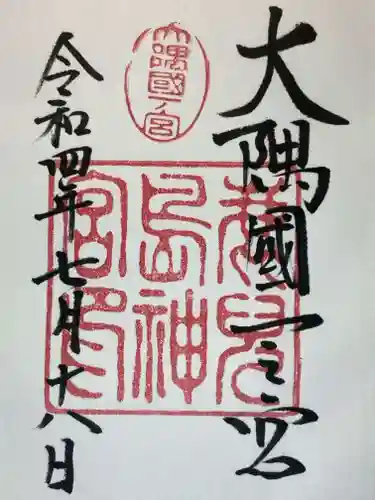 大隅國一之宮
大隅國一ノ宮
鹿兒島神宮印
令和四年七月十八日